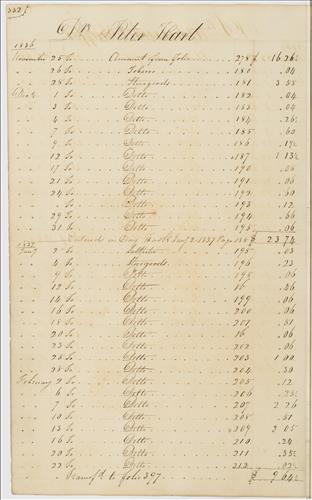 332
Dr Peter Hart
1836
November 25 To Amount from folio 278 $ 16 26½
" " 26 To Tobacco 180 .04
" " 28 To Storegoods 181 3 58
Decr 1 To Ditto 182 .04
" " 3 To Ditto 183 .04
" " 4 To Ditto 184 .26½
" " 7 To Ditto 185 .60
" " 9 To Ditto 186 .19½
" " 12 To Ditto 187 1 13½
" " 17 To Ditto 190 .08
" " 21 To Ditto 191 .06
" " 24 To Ditto 192 .50
" " " To Ditto 193 .12
" " 29 To Ditto 194 .66
" " 31 To Ditto 195 .06
Entered in Day Book Jany 2 1837 Page 158 $ 23 74
1837
Jany 2 To 195 .03
" " 4 To Storegoods 196 .23
" " 9 To Ditto 198 .06
" " 12 To Ditto .46
" " 14 To Ditto 199 .06
" " 16 To Ditto 200 .06
" " 18 To Ditto 201 .51
" " 20 To Ditto .06
" " 23 To Ditto 202 .06
" " 25 To Ditto 203 1 00
" " 28 To Ditto 204 .50
February 2 To Ditto 205 .12
" " 6 To Ditto 206 .25½
" " 7 To Ditto 207 2 26
" " 10 To Ditto 208 .51
" " 13 To Ditto 209 2 05
" " 16 To Ditto 210 .24
" " 20 To Ditto 211 .35½
" " 22 To Ditto 212 .02½
Transfd to folio 397 $ 9 64½